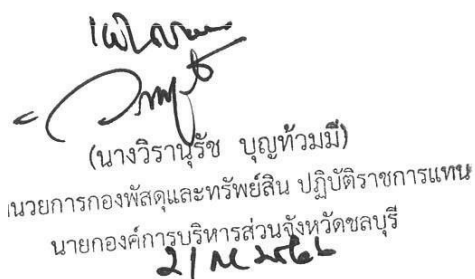 (นางวิรานุรัช บุญท้วมมี)
นวยการกองพัสดุและทรัพย์สิน ปฏิบัติราชการแทน
นายกองค์การบริหารส่วนจังหวัดชลบุรี
21